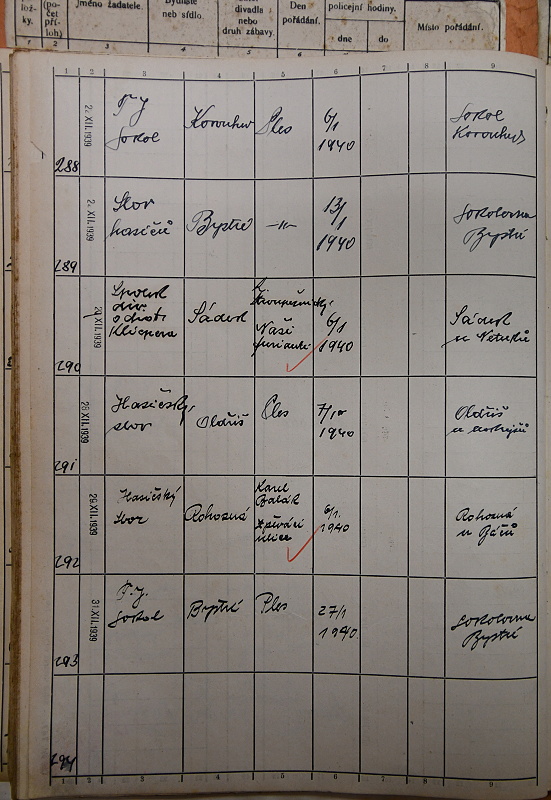 lož-
ky.
(po-
čet
příl-
loh)
Jméno žadatele.
Bydliště
neb sídlo.
divadla
nebo
druh zábavy.
Den
pořádání.
policejní hodiny.
dne
do
Místo pořádání.
1 2 3 4 5 6 7 8 9
288
2. XII. 1939
T. J.
Sokol
Korouhev
Ples
6/1
1940
Sokol
Korouhev
289
2. XII. 1939
Sbor
hasičů
Bystré
-"-
13/1
1940
Sokolovna
Bystré
290
XII. 1939
Spolek
div.
ochot.
Klicpera
Sádek
Stroupežnický
Naši
furianti
6/1
1940
Sádek
u
291
28. XII. 1939
Hasičský
sbor
Oldřiš
Ples
7/
1940
Oldřiš
u
292
29. XII. 1939
Hasičský
sbor
Rohozná
Karel
Balák
ulice
6/1
1940
Rohozná
u
293
31. XII. 1939
T. J.
Sokol
Bystré
Ples
27/1
1940
Sokolovna
Bystré
294
1 2 3 4 5 6 7 8 9